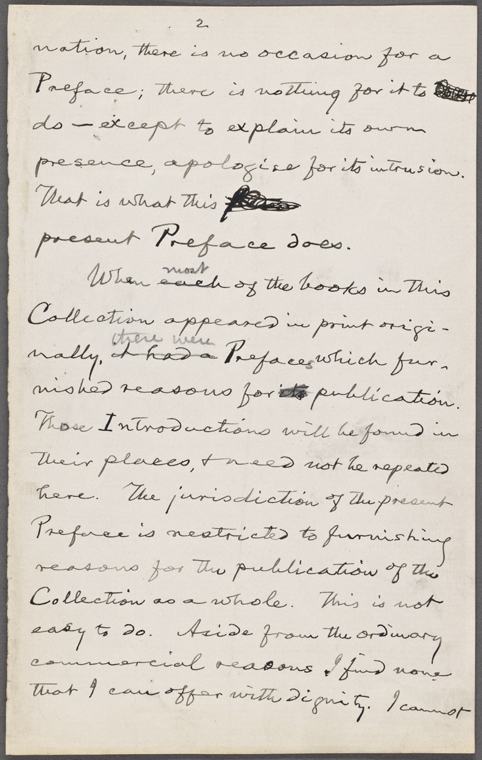 2
nation, there is no occasion for a
Preface; there is nothing for it to
do — except to explain its own
presence, apologise for its intrusion.
That is what this
present Preface does.
most
When each of the books in this
Collection appeared in print origi-
there were
nally, it had a Prefaces which fur-
nished reasons for its publication.
Those Introductions will be found in
their places, & need not be repeated
here. The jurisdiction of the present
Preface is restricted to furnishing
reasons for the publication of the
Collection as a whole. This is not
easy to do. Aside from the ordinary
commercial reasons I find none
that I can offer with dignity. I cannot